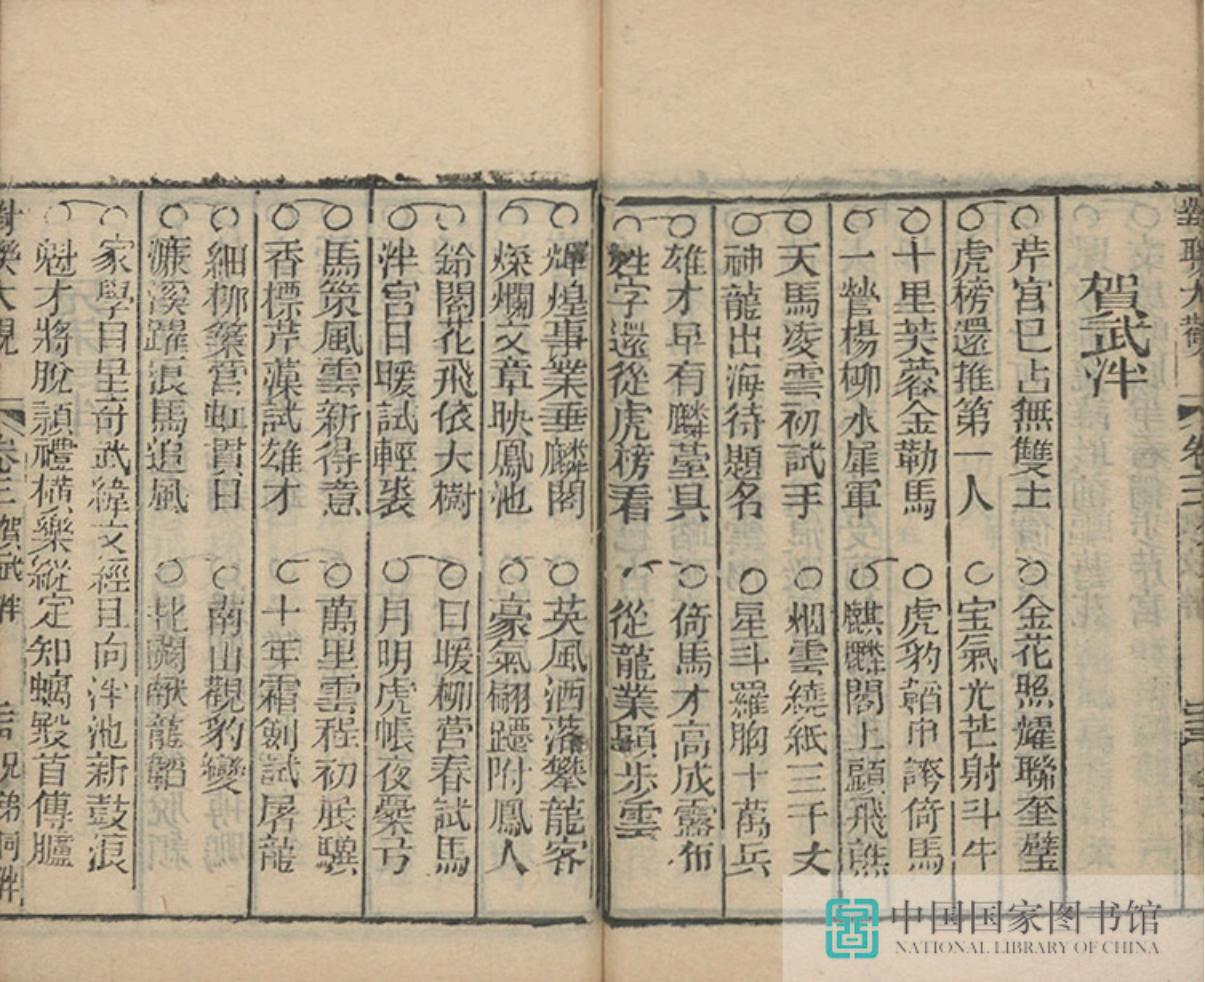 對聯大觀 卷三 賀武泮
賀武泮
○芹宫已占無雙士 ○金花照耀聯奎璧
○虎榜還推第一人 ○宝氣光芒射斗牛
○十里芙蓉金勒馬 ○虎豹韜中誇倚馬
○一營楊柳水犀軍 ○麒麟閣上顯飛熊
○天馬凌雲初試手 ○烟雲繞紙三千丈
○神龍出海待題名 ○星斗羅胸十萬兵
○雄才早有麟臺具 ○倚馬才高成露布
○姓字還從虎榜看 ○從龍業顕步雲
○輝煌事業垂麟閣 ○英風洒落攀龍客
○燦爛文章映鳳池 ○豪氣翩躚附鳳人
○鈴閣花飛依大樹 ○日暖柳营春試馬
○泮宫日暖試輕裘 ○月明虎帳夜櫜弓
○馬策風雲新得意 ○萬里雲程初展驥
○香標芹藻試雄才 ○十年霜劍試屠龍
○細柳築营虹貫日 ○南山觀豹變
○濂溪躍浪馬追風 ○北闕献龍韜
○家學自呈奇武緯文經且向泮池新鼓浪
○魁才將脫穎禮橫樂縱定知螭殿首傳臚
對聯大觀 卷三 賀武泮 兄弟同泮
中国国家图书馆
NATIONAL LIBRARY OF CHINA